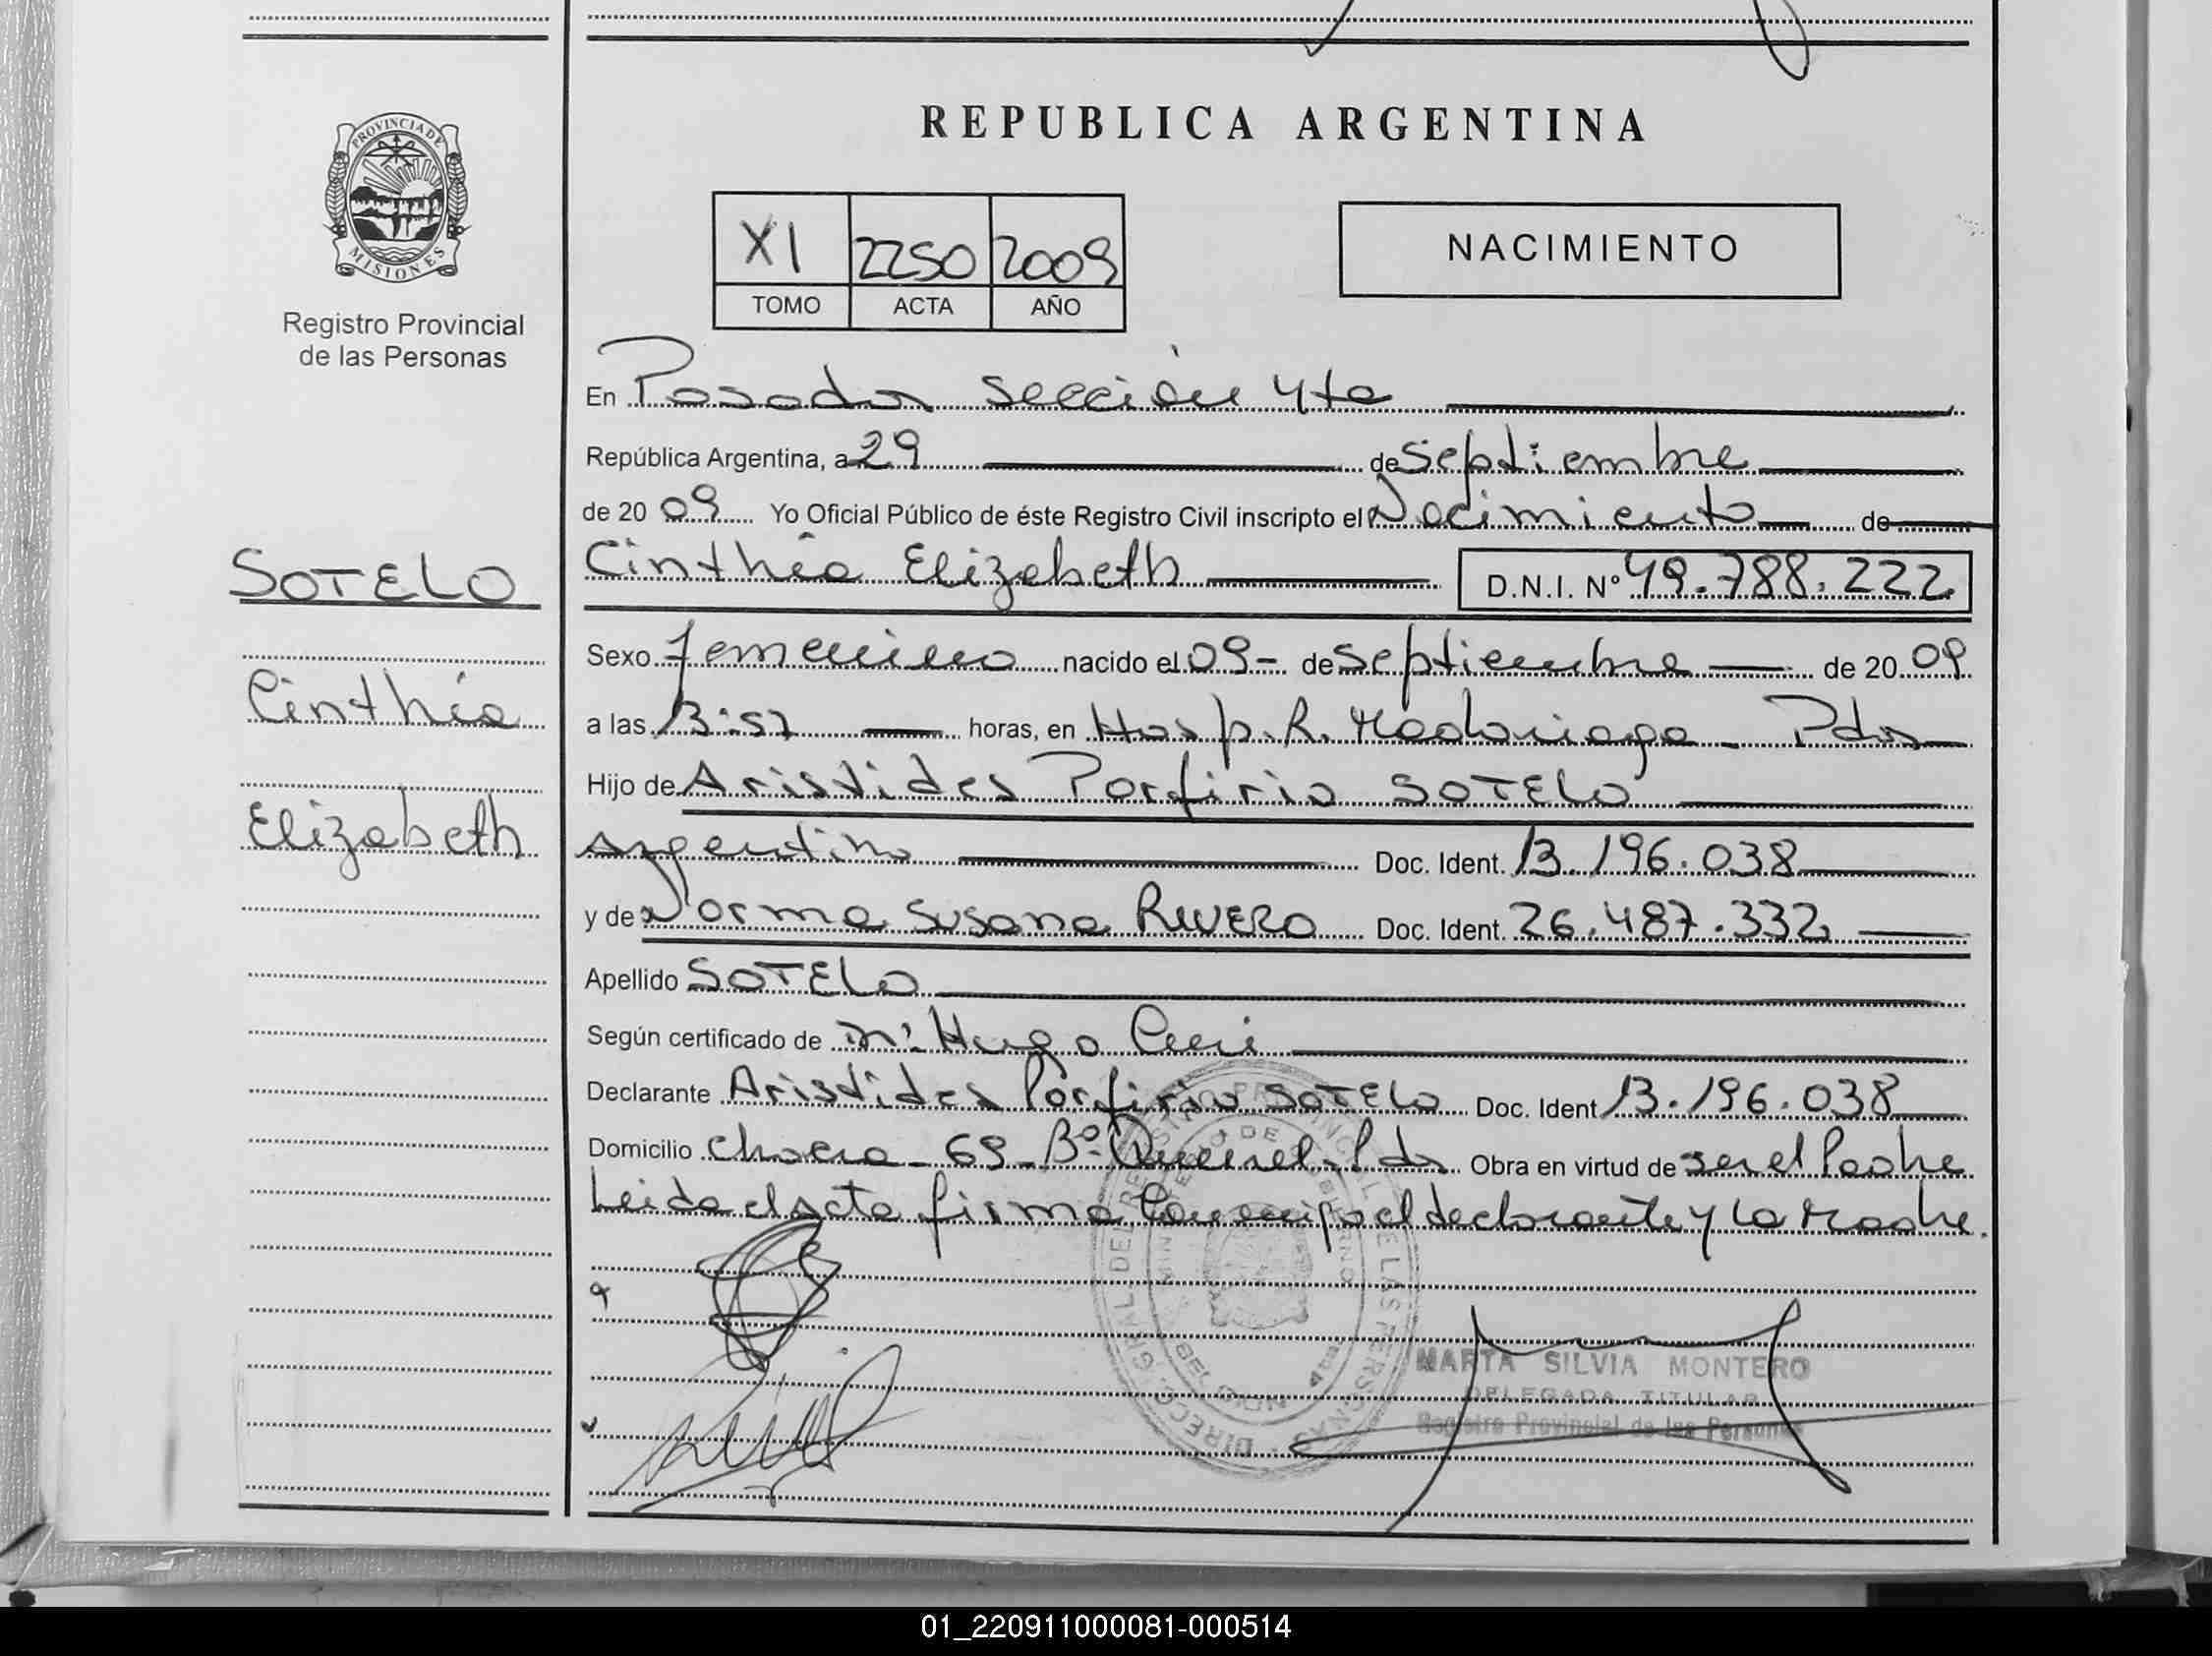 REPUBLICA ARGENTINA
PROVINCIA DE
MISIONES
Registro Provincial
de las Personas
XI 2250 2009
TOMO ACTA AÑO
NACIMIENTO
En Posadas sección 4ta
República Argentina, a 29 de Septiembre
de 20 09 Yo Oficial Público de éste Registro Civil inscripto el Nacimiento de
SOTELO
Cinthia
Elizabeth
Cinthia Elizabeth D.N.I. Nº 49.788.222
Sexo femenino nacido el 09- de Septiembre de 20 09
a las 13:57 horas, en Hosp. R. Madariaga - Pdas
Hijo de Aristides Porfirio SOTELO
Argentino Doc. Ident. 13.196.038
y de Norma Susana RIVERO Doc. Ident. 26.487.332
Apellido SOTELO
Según certificado de Hugo
Declarante Aristides Porfirio SOTELO Doc. Ident 13.196.038
Domicilio Chacra - 69 - Bº Pdas Obra en virtud de ser el Padre
Leida el acta firma conmigo el declarante y la Madre.
MARTA SILVIA MONTERO
DELEGADA TITULAR
Registro Provincial de las Personas
01_220911000081-000514